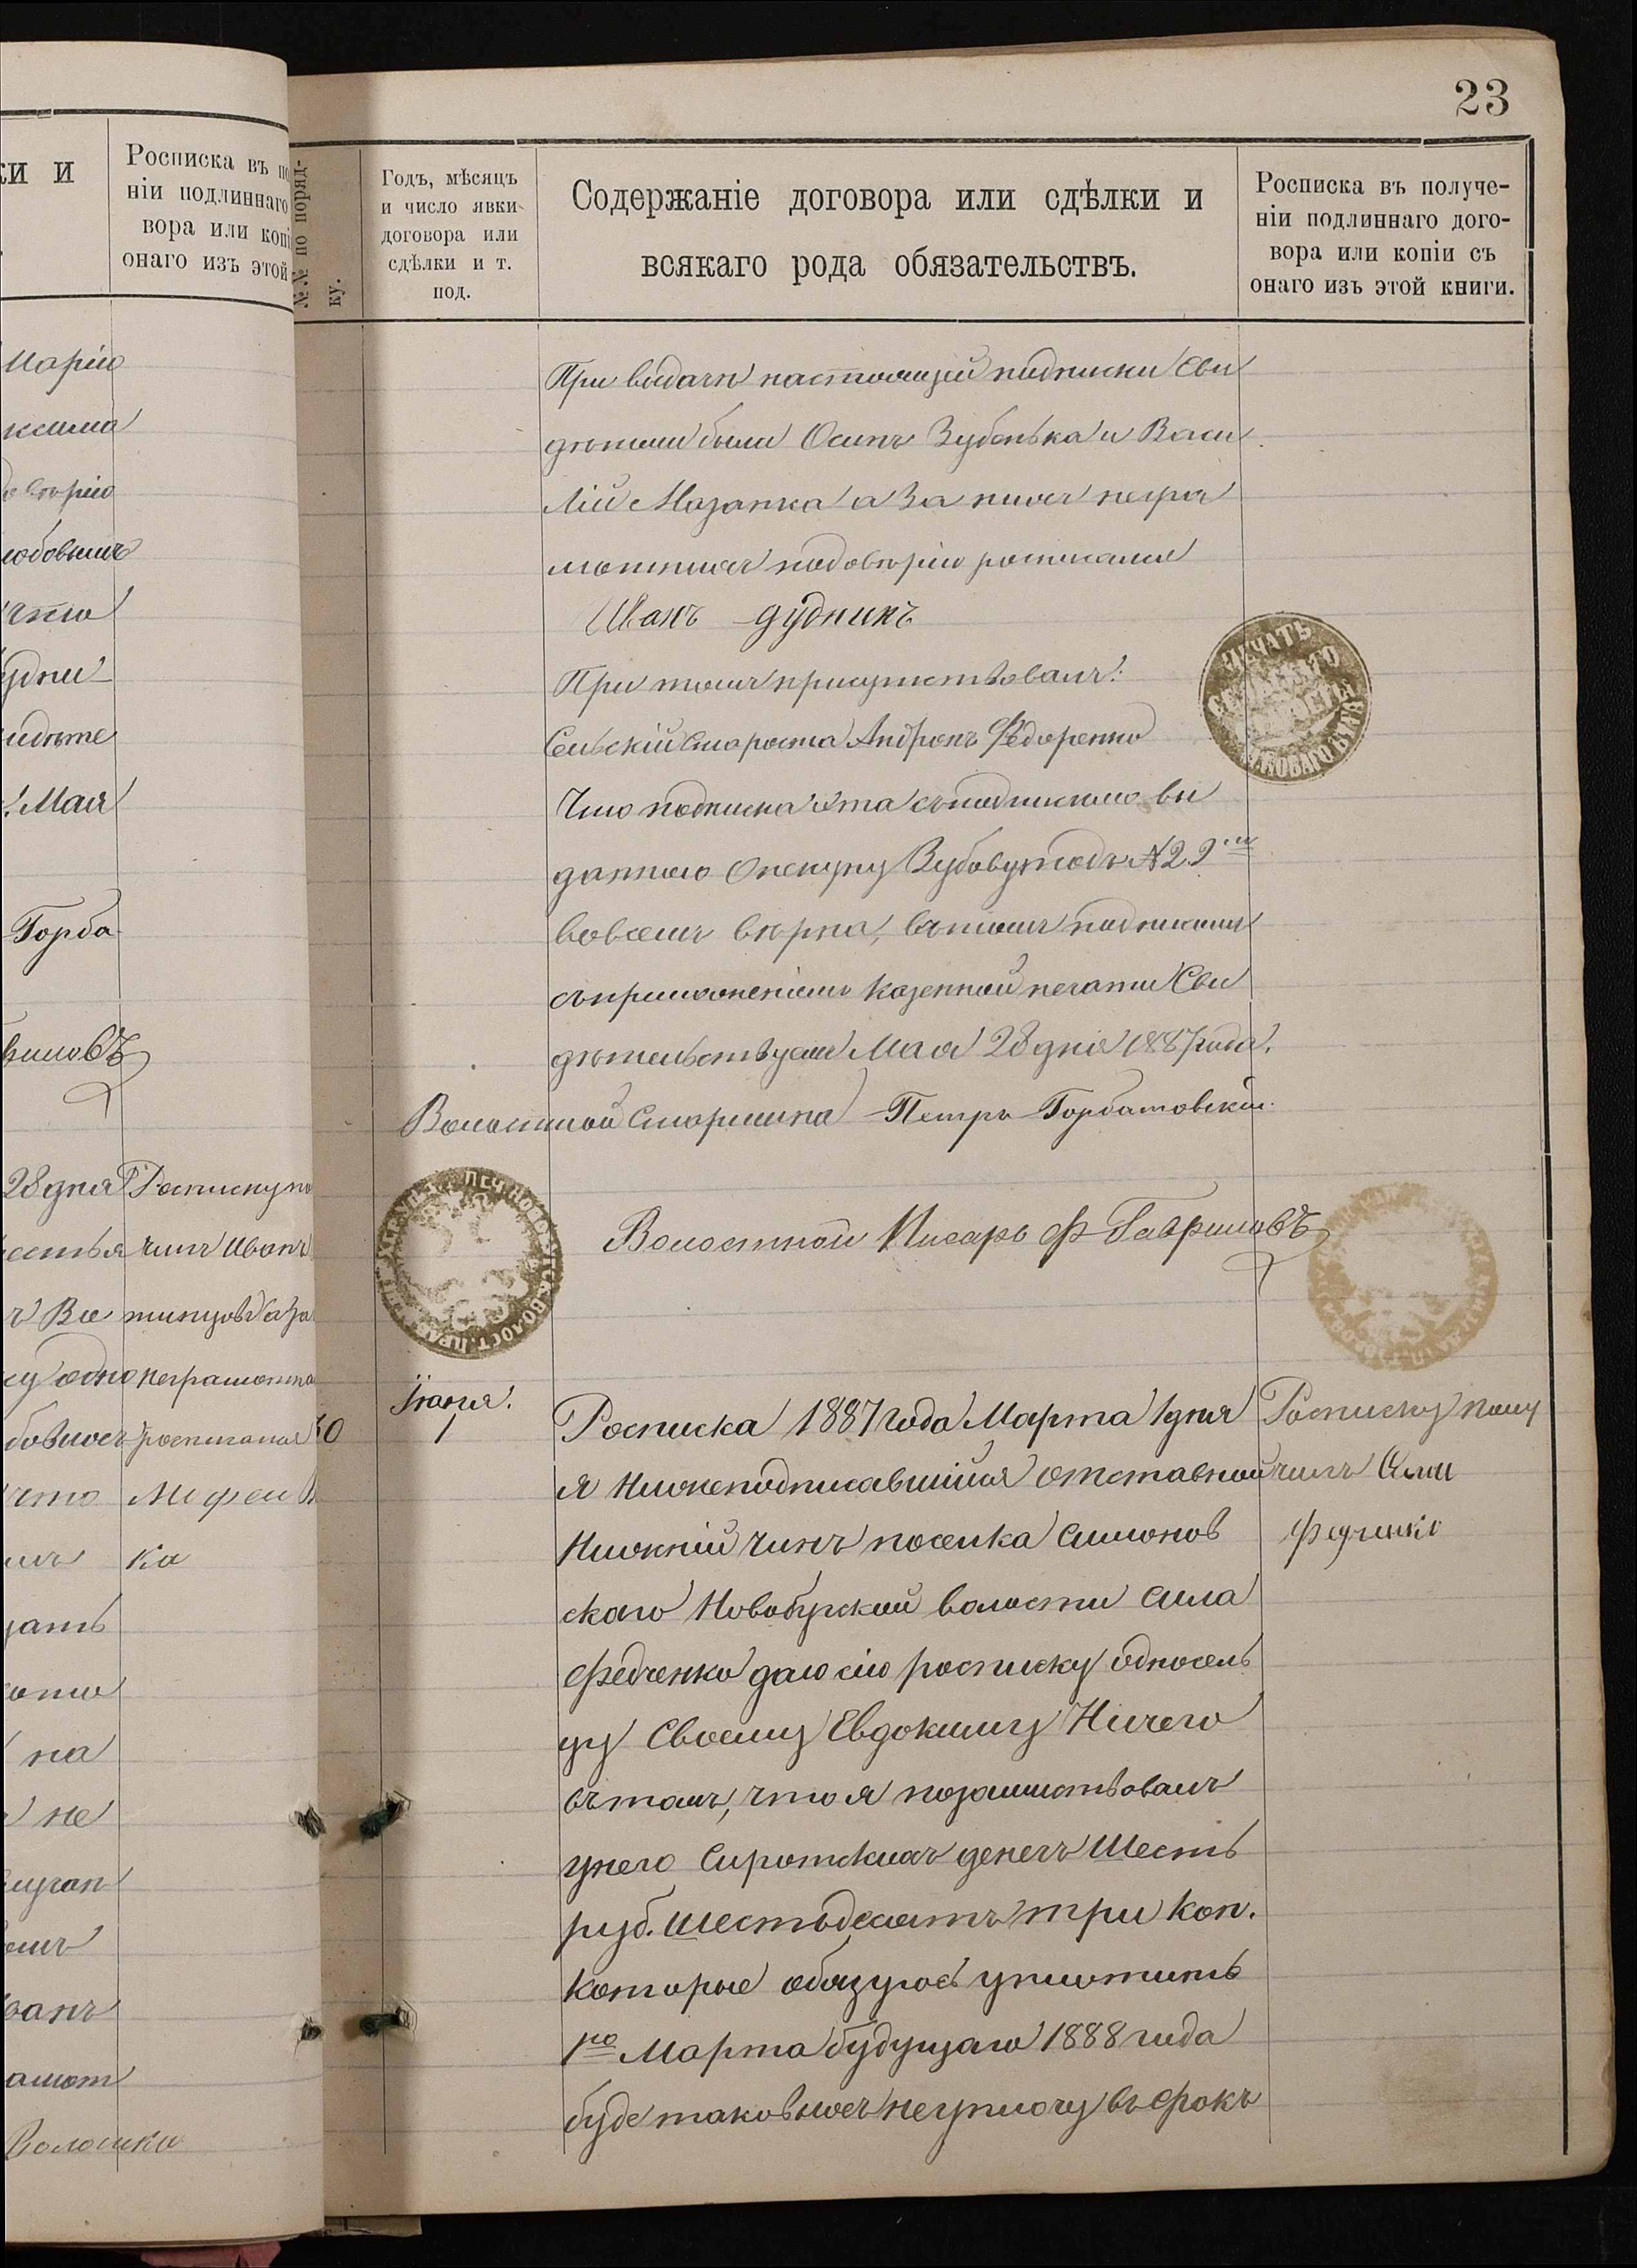 23
ки и
Росписка въ по
ніи подлиннаго
вора или копі
онаго изъ этой
№№ по поряд-
ку.
Годъ, мѣсяцъ
и число явки
договора или
сдѣлки и т.
под.
Содержаніе договора или сдѣлки и
всякаго рода обязательствъ.
Росписка въ получе-
ніи подлиннаго дого-
вора или копіи съ
онаго изъ этой книги.
Марію
ксима
довѣрію
любовымъ
что
удни
идѣте
Мая
Горба
вриловъ
28 дня
Росписку по
естья
чилъ Иванъ
Все
су одно
неграмотна
бовыхъ
росписался
что
Мефеи
ка
ать
на
не
ванъ
амот
Волошка
При выдачи настоящей подписки Сви
дѣтели были Осипъ Зубенька и Васи
лій Мазанка а за нихъ негра
мотныхъ подовѣрію росписался
Иванъ Дудникъ
При томъ присутствовалъ:
Сельскій Староста Андронъ Федоренко
ПЕЧАТЬ
Что подписка эта съ подпискою вы
данною Опекуну Зубову подъ №29
вовсемъ вѣрна, въ томъ подписями
съ приложеніемъ казенной печати Сви
дѣтельствуемъ Мая 28 дня 1887 года.
Волостной Старшина Петръ Горбатовскій
Волостной Писарь Ф Гавриловъ
30
Іюня
1
Росписка 1887 года Марта 1 дня
я нижеподписавшійся отставной
Нижній чинъ поселка Симонов
скаго Новобугской волости Сила
Федченко даю сію росписку односель
цу Своему Евдокиму Ничего
въ томъ, что я позаимствовалъ
унего Сиротскихъ денегъ Шесть
руб. шестьдесятъ три коп.
которые обязуюсь уплатить
1го Марта будущаго 1888 года
буде таковыхъ неуплачу въ срокъ
Росписку полу
чилъ Сила
Федченко